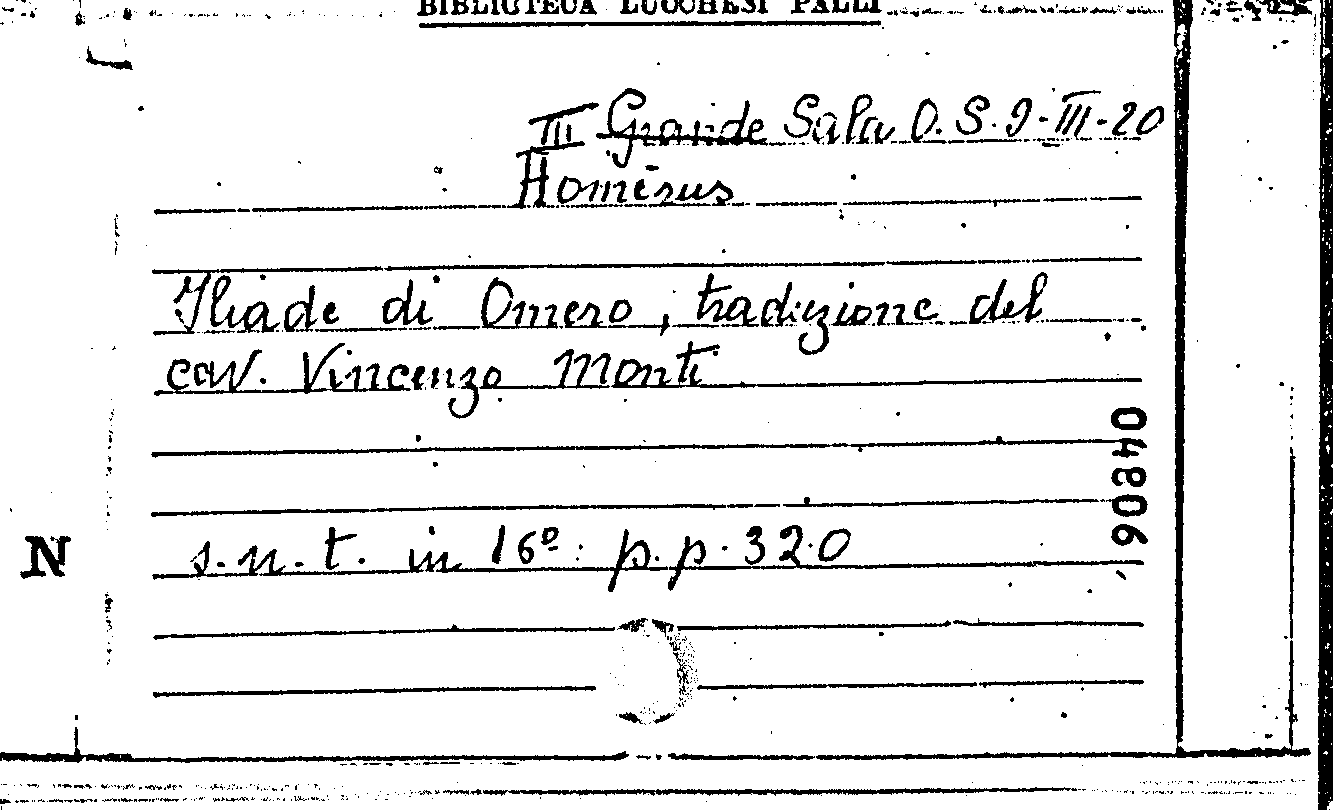 BIBLIOTECA LUCCHESI PALLI
III Grande Sala O.S. 9-III-20
Homērus
Iliade di Omero, traduzione del
cav. Vincenzo Monti
04806
N
s.n.t. in 16º. p.p. 320